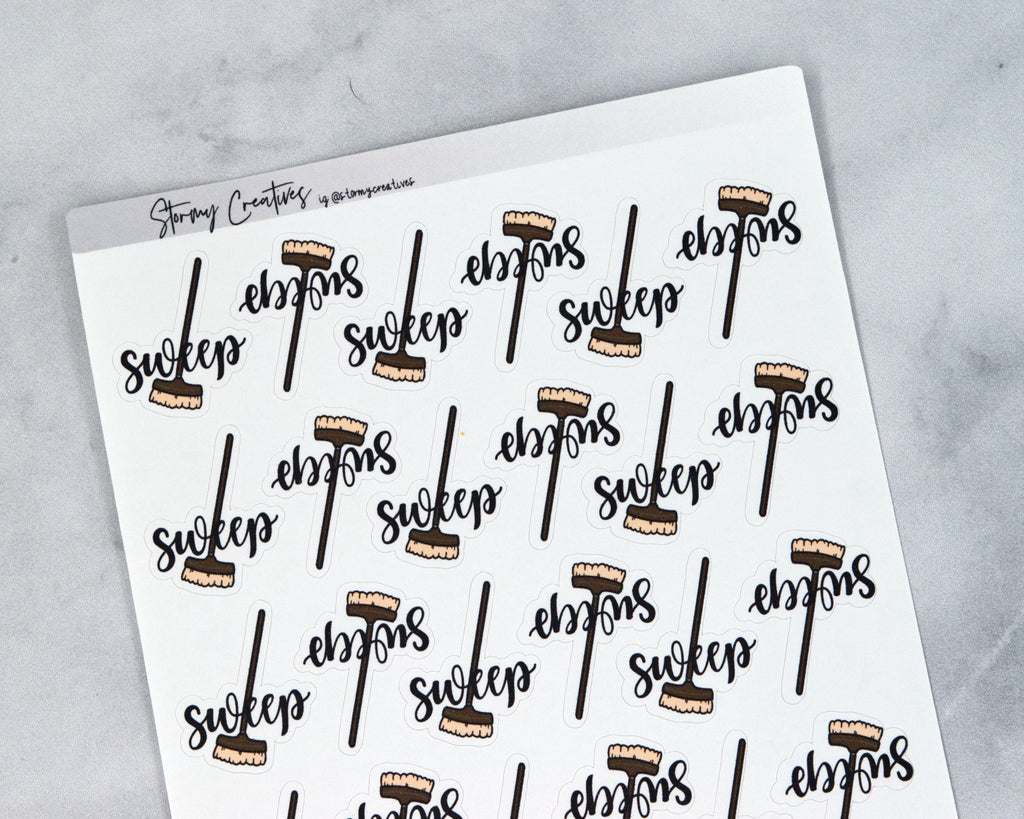 Stormy Creatives ig @stormycreatives
sweep sweep sweep sweep sweep sweep
sweep sweep sweep sweep sweep sweep
sweep sweep sweep sweep sweep sweep
sweep sweep sweep